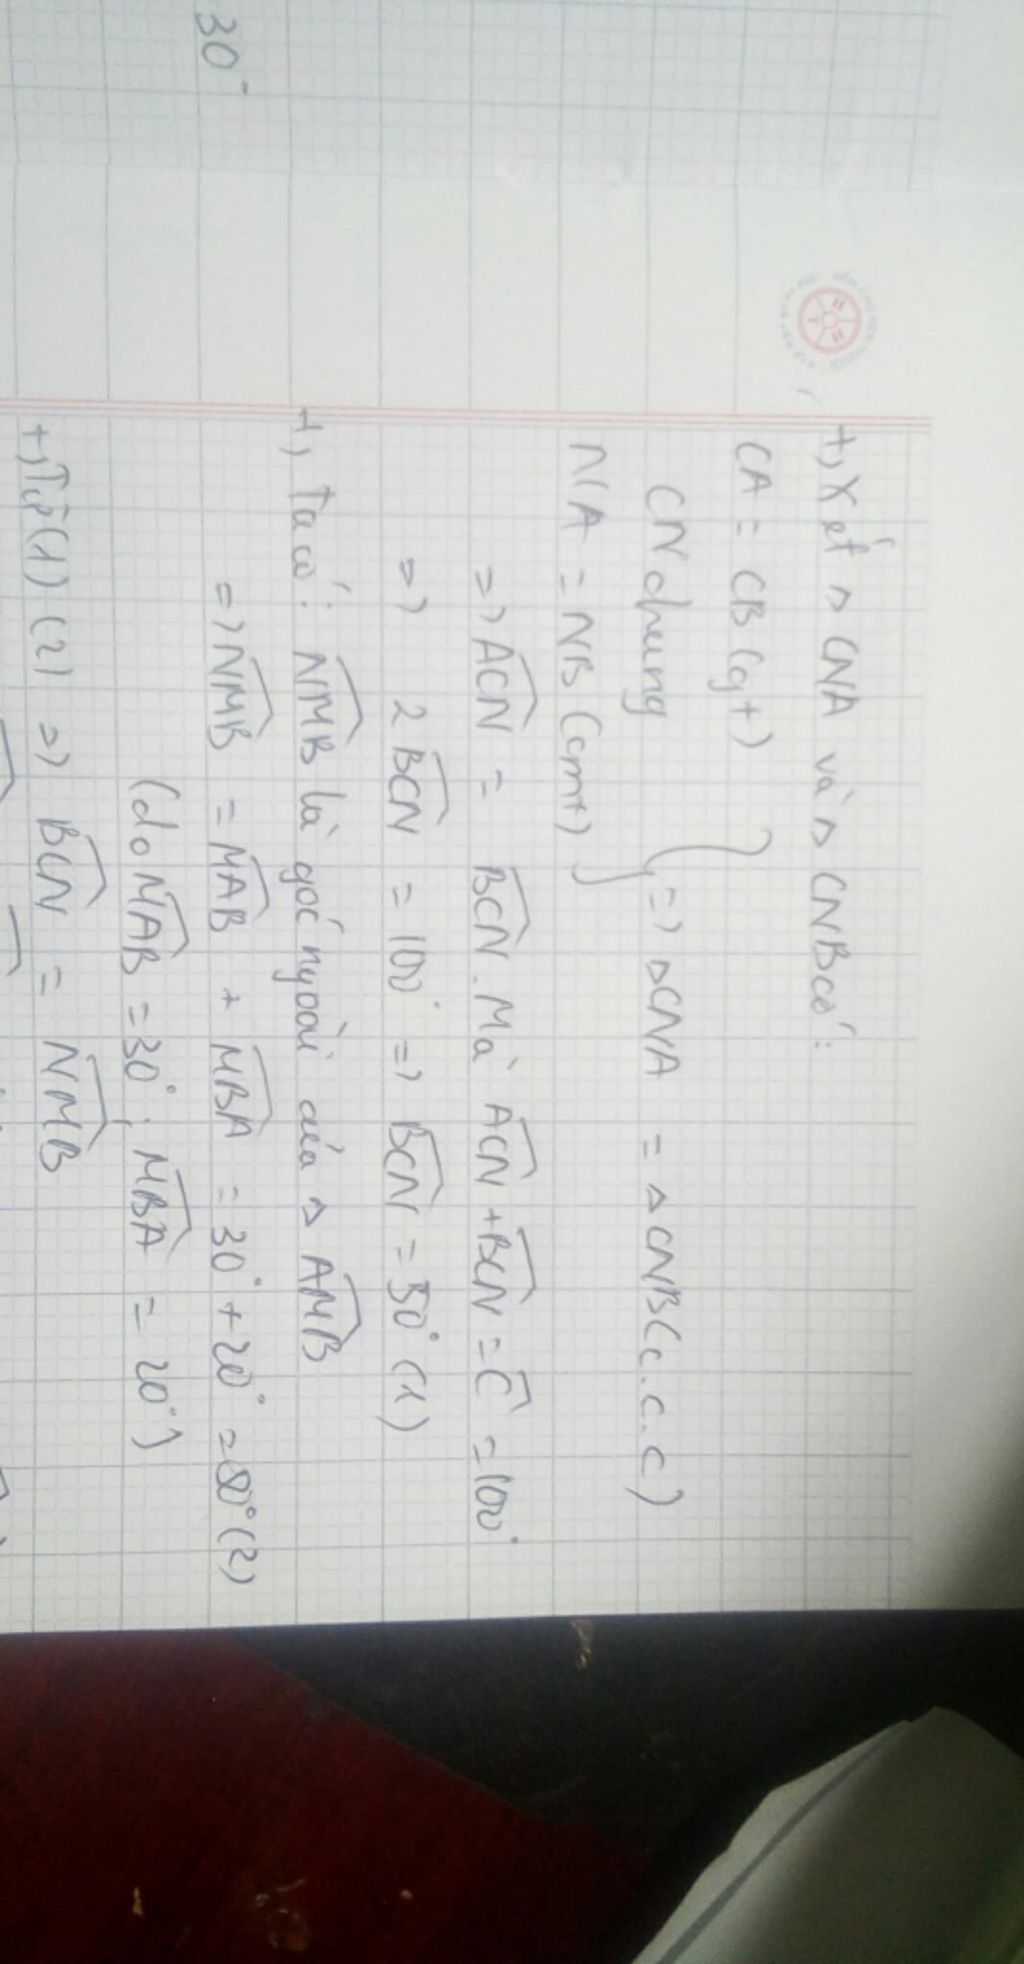 +, Xét △ CNA và △ CNB có:
CA = CB (gt)
CN chung } => △CNA = △CNB (c.c.c)
NA = NB (cmt)
=> \widehat{ACN} = \widehat{BCN}. Mà \widehat{ACN} + \widehat{BCN} = \widehat{C} = 100°
=> 2 \widehat{BCN} = 100° => \widehat{BCN} = 50° (1)
+, Ta có: \widehat{NMB} là góc ngoài của △ \widehat{AMB}
=> \widehat{NMB} = \widehat{MAB} + \widehat{MBA} = 30° + 20° = 50° (2)
30°
(do \widehat{MAB} = 30°; \widehat{MBA} = 20°)
+, Từ (1) (2) => \widehat{BCN} = \widehat{NMB}